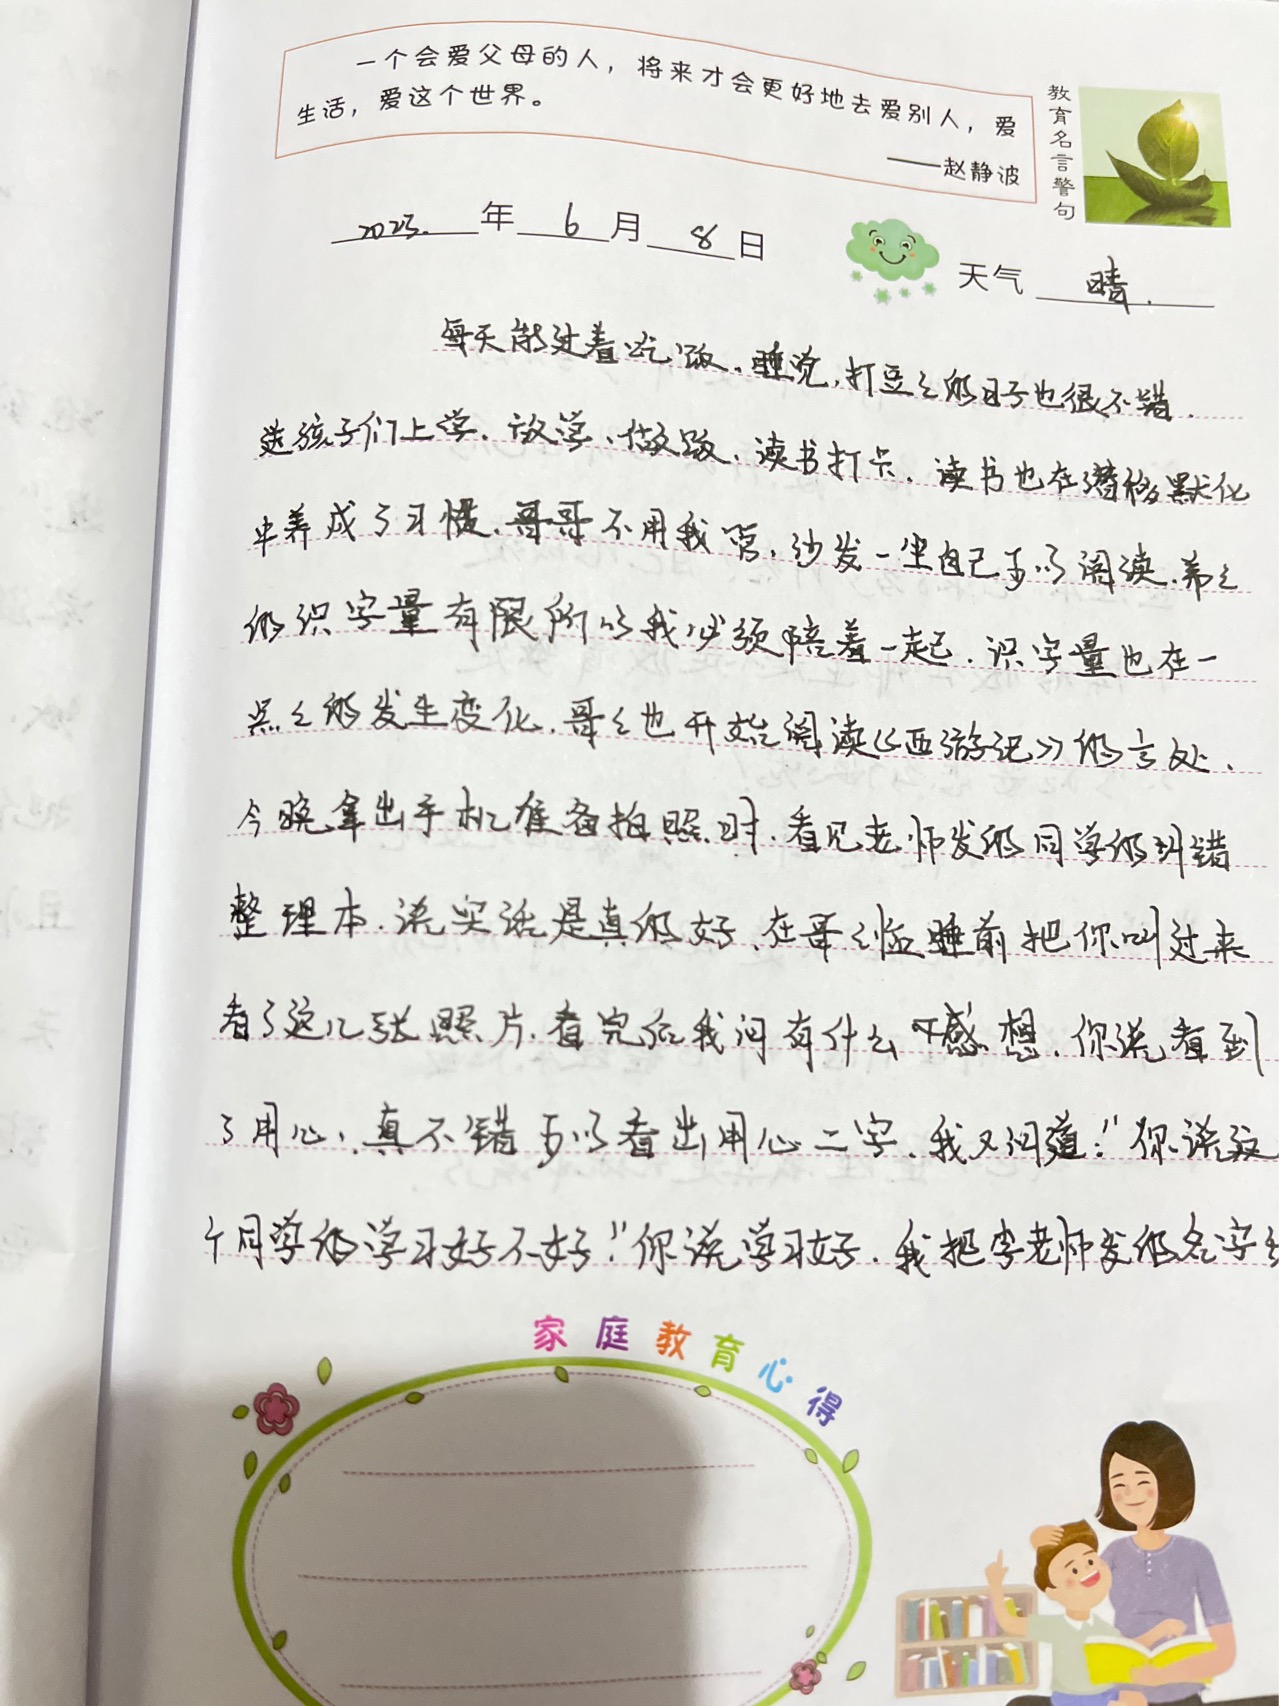 一个会爱父母的人，将来才会更好地去爱别人，爱
生活，爱这个世界。
——赵静波
教育名言警句
2025. 年 6 月 8 日
天气 晴.
每天能过着吃饭、睡觉,打豆々的日子也很不错.
送孩子们上学、放学、做饭、读书打卡.读书也在潜移默化
中养成了习惯.哥哥不用我管,沙发一坐自己可以阅读.弟々
的识字量有限所以我必须陪着一起.识字量也在一
点々的发生变化.哥々也开始阅读《西游记》的言处.
今晚拿出手机准备拍照时.看见老师发的同学的纠错
整理本.说实话是真的好.在哥々临睡前把你叫过来
看了这几张照片.看完后我问有什么感想.你说看到
了用心,真不错可以看出用心二字.我又问道:"你说这
个同学的学习好不好"你说学习好.我把李老师发的名字
家庭教育心得